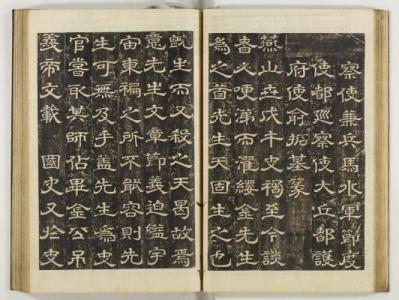 察使兼兵馬水軍節度
使都巡察使大丘都護
府使俞拓基篆
燕山世戊午史禍至今談
者必哽涕而濯纓金先生
爲之首先生天固生之也
旣生而又殺之天曷故焉
意先生文章節義迫隘宇
宙東褊之所不能容則先
生可無及乎盖先生爲史
官嘗取其師佔畢金公吊
義帝文載 國史又於史